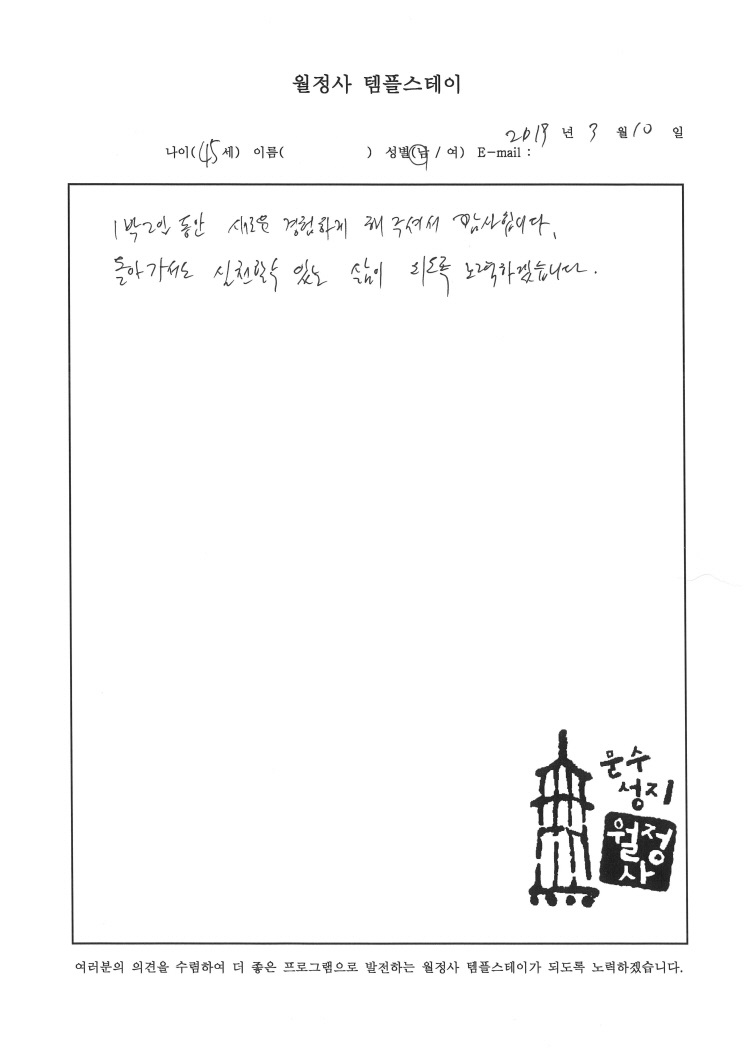 월정사 템플스테이
2019 년 3 월 10 일
나이(45세) 이름( ) 성별(남 / 여) E-mail :
1박2일 동안 새로운 경험하게 해 주셔서 감사합니다.
돌아가서도 실천할수 있는 삶이 되도록 노력하겠습니다.
문수
성지
월정
사
여러분의 의견을 수렴하여 더 좋은 프로그램으로 발전하는 월정사 템플스테이가 되도록 노력하겠습니다.